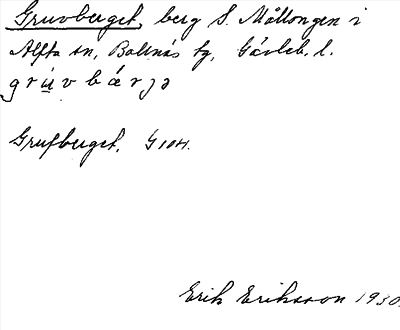 Gruvberget, berg S. Mållongen i
Alfta sn, Bollnäs tg, Gävleb. l.
grúvbárjə
Grufberget. G10H.
Erik Eriksson 1930.